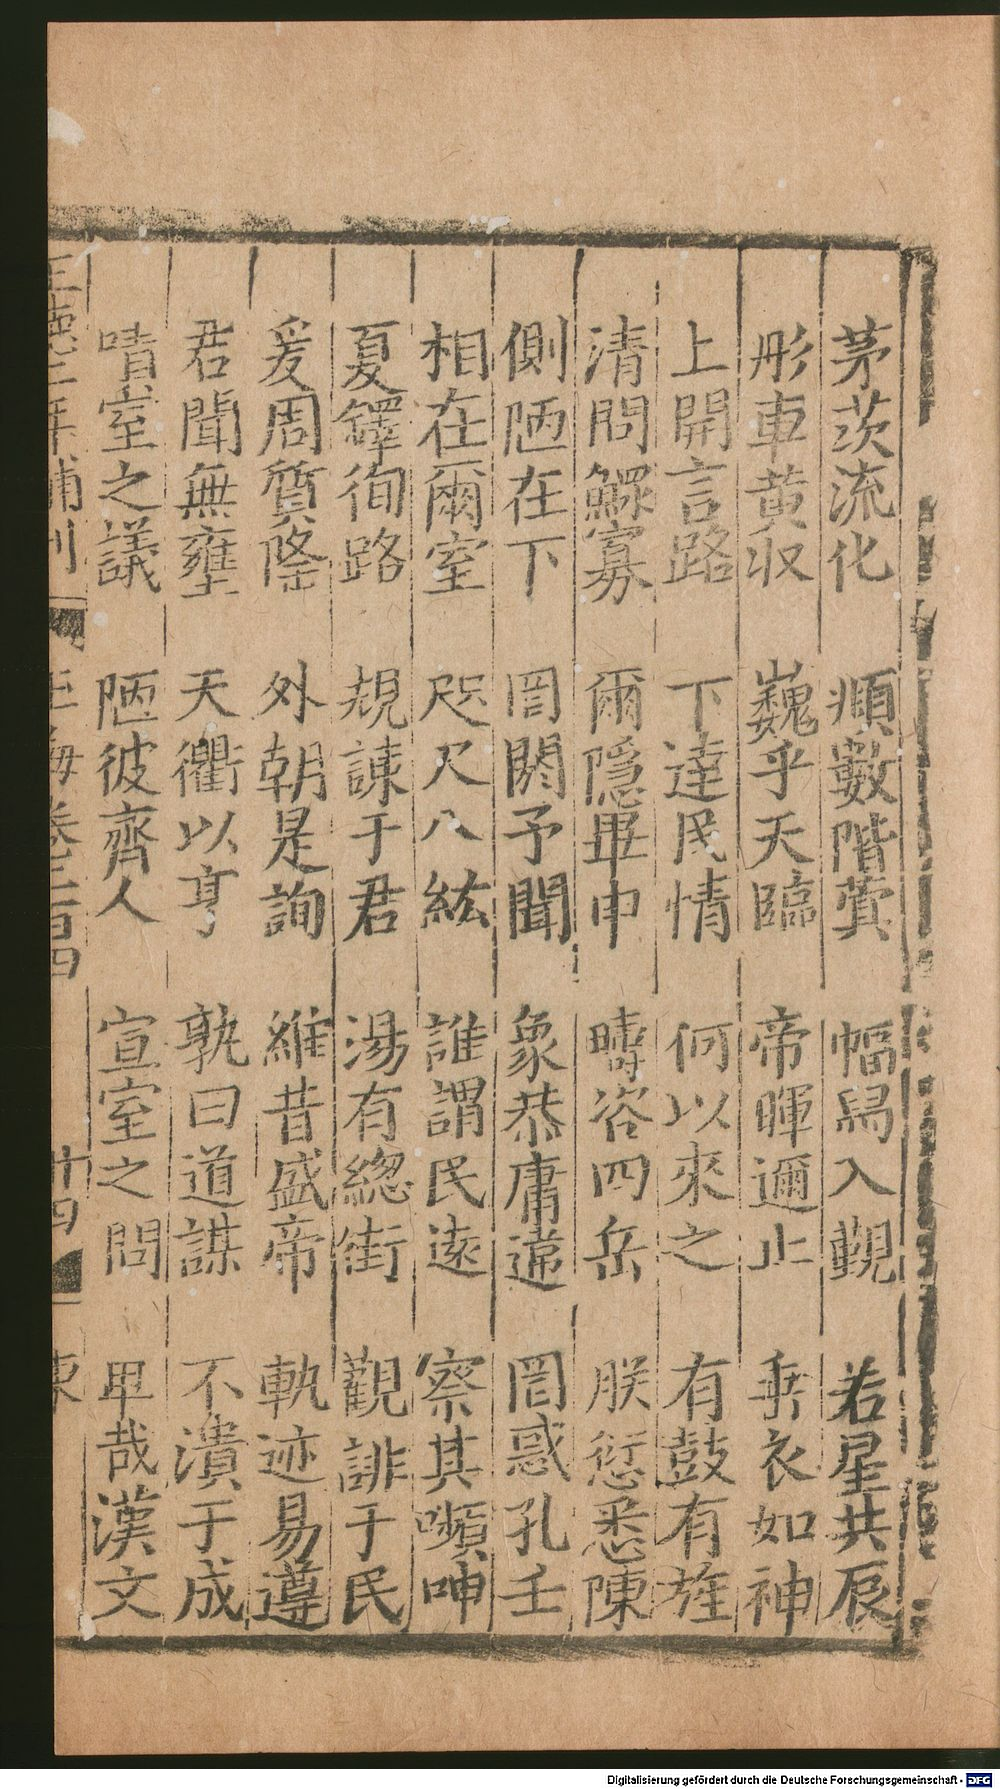 茅茨流化 頫數階蓂 幅舄入覲 若星共辰
彤車黄収 巍乎天臨 帝暉邇止 垂衣如神
上開言路 下達民情 何以來之 有鼓有旌
清問鰥寡 爾隱畢申 疇咨四岳 朕愆悉陳
側陋在下 罔閼予聞 象恭庸違 罔惑孔壬
相在爾室 咫尺八紘 誰謂民遠 察其嚬呻
夏鐸徇路 規諫于君 湯有總街 觀誹于民
爰周質條 外朝是詢 維昔盛帝 軌迹易遵
君聞無壅 天衢以亨 孰曰道謀 不潰于成
嘖室之議 陋彼齊人 宣室之問 畢哉漢文
玉海卷二百四 廿四
Digitalisierung gefördert durch die Deutsche Forschungsgemeinschaft - DFG